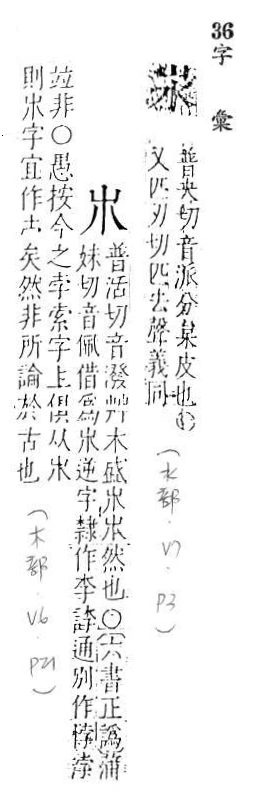 36字 彙
𣎳 普夬切音派分枲皮也○
又匹刃切匹去聲義同
(水部.V7.P3)
朩 普活切音潑艸木盛朩朩然也○六書正譌蒲
妹切音佩借爲朩逆字隸作孛誖通別作悖
竝非○愚按今之孛索字上俱从朩
則朩字宜作矣然非所論於古也
(木部.V6.P21)